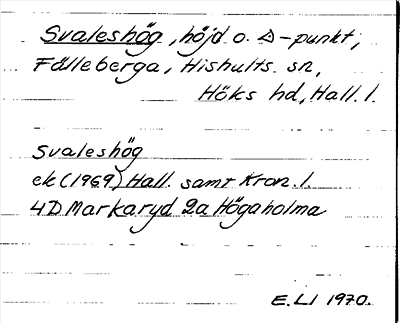 Svaleshög, höjd o. △-punkt,
Fälleberga, Hishults sn,
Höks hd, Hall. l.
Svaleshög
ek (1969) Hall. samt Kron. l.
4D Markaryd 2a Högaholma
E. LI 1970.